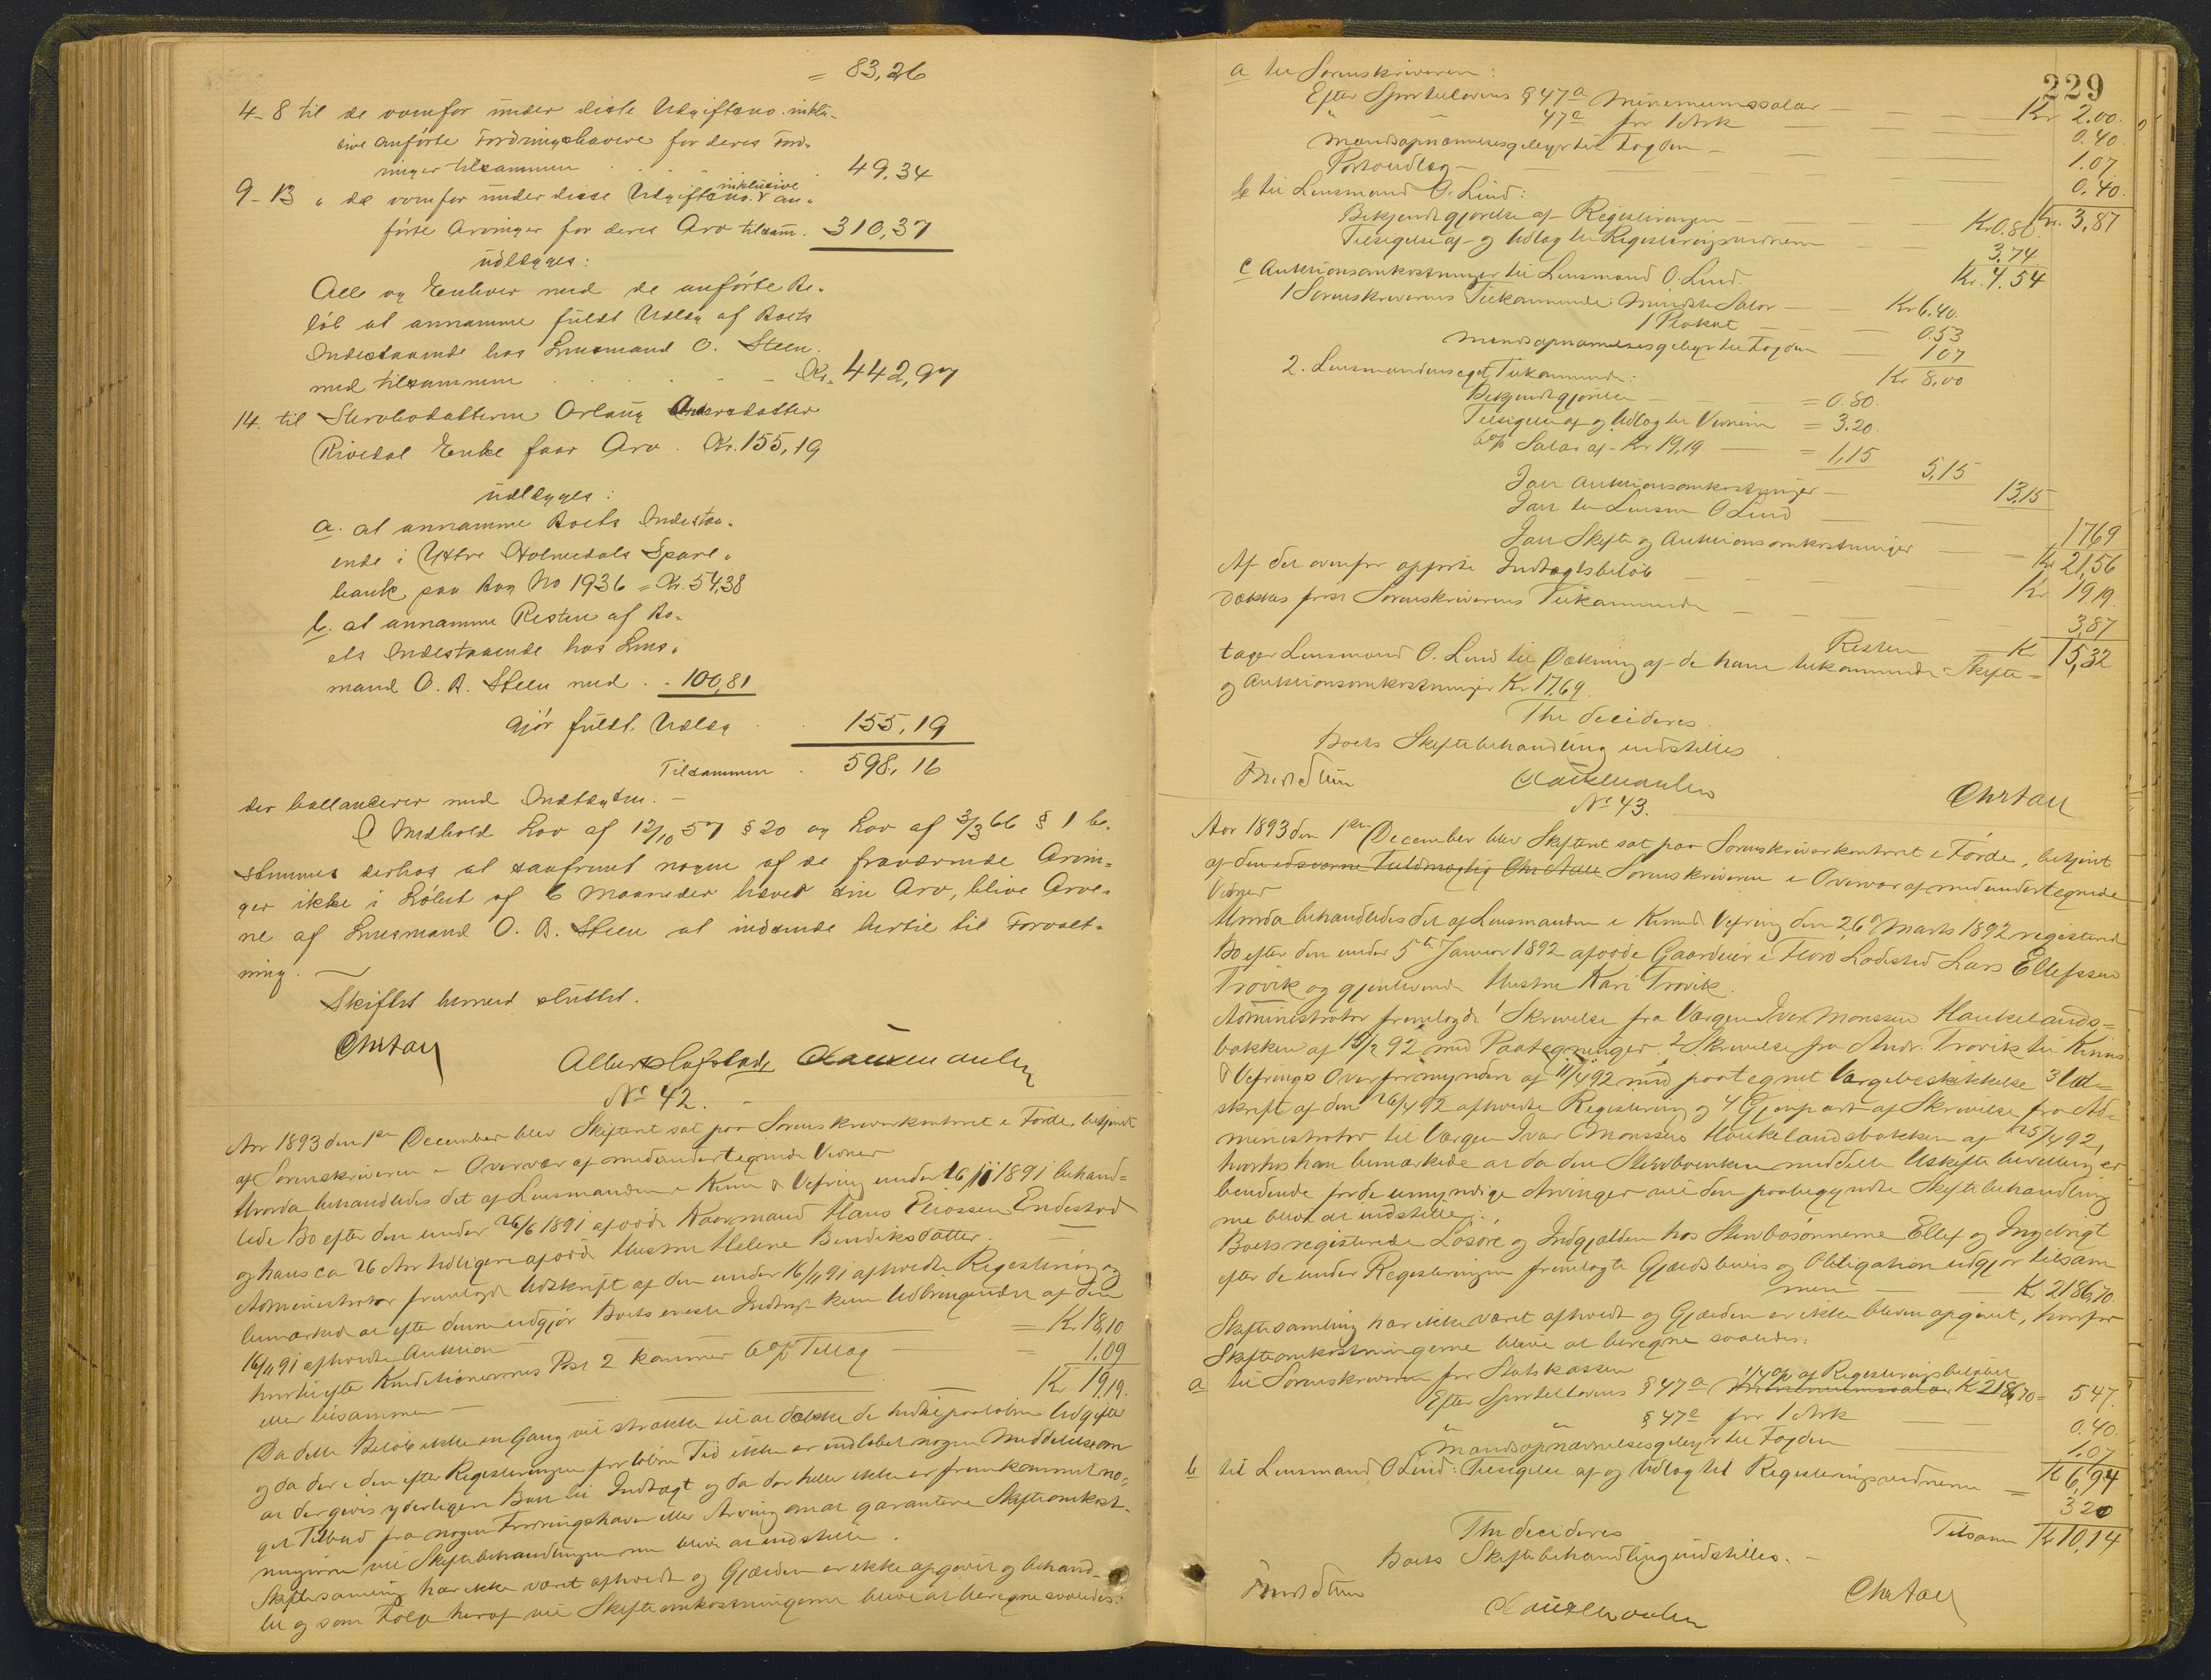 = 83,26
4-8 til de ovenfor under disse Udgiftsno. inklu-
sive anførte Fordringshavere for deres Ford-
ringer tilsammen . . . 49,34
9-13 " de ovenfor under disse Udgiftsno. inklusive an-
førte Arvinger for deres Arv tilsam. 310,37
udlægges:
Alle og Enhver med de anførte Be-
løb at annamme fuldt Udlæg af Boets
Indestaaende hos Lensmand O. Steen
med tilsammen . . . . Kr. 442,97
14. til Stervbodatteren Orlaug Andersdatter
Rivedal Enke faar Arv . Kr. 155,19
udlægges:
a. at annamme Boets Indestaa-
ende i Yttre Holmedals Spare-
bank paa Bog No 1936 = Kr. 54,38
b. at annamme Resten af Bo-
ets Indestaaende hos Lens-
mand O. B. Steen med . . 100,81
gjør fuldt Udlæg . . 155,19
Tilsammen . 598,16
der ballancerer med Indtægten. -
I Medhold Lov af 12/10 57 § 20 og Lov af 3/3 66 § 1 be-
stemmes derhos at saafremt nogen af de fraværende Arvin-
ger ikke i Løbet af 6 Maaneder hæver sin Arv, blive Arve-
ne af Lensmand O. B. Steen at indsende hertil til Forvalt-
ning.
Skiftet hermed sluttet.
Chr Aall
No 42.
Aar 1893 den 1ste December blev Skifteret sat paa Sorenskriverkontoret i Førde, betjent
af Sorenskriveren i Overvær af medundertegnede Vidner
Hvorda behandledes det af Lensmanden i Kinn & Vefring under 16/11 1891 behand-
lede Bo efter den under 26/6 1891 afdøde Kaarmand Hans Eliassen Endestad
og hans ca 26 Aar tidligere afdøde Hustru Helene Bendiksdatter.
Administrator fremlagde Udskrift af den under 16/11 91 afholdte Registrering og
bemærkede at efter denne udgjør Boets eneste Indtægt kun Udbringendet af den
16/11 91 afholdte Auktion = Kr 18,10
hvortil efter Konditionernes Post 2 kommer 6% Tillæg = 1.09
eller tilsammen Kr 19,19.
Da dette Beløb ikke en Gang vil strække til at dække de hidtil paaløbne Udgifter
og da der i den efter Registreringen forløbne Tid ikke er indløbet nogen Meddelelse om
at der gives yderligere Boet til Indtægt og da der heller ikke er fremkommet no-
get Tilbud fra nogen Fordringshaver eller Arving om at garantere Skifteomkost-
ningerne vil Skiftebehandlingen nu blive at indstille.
Skiftesamling har ikke været afholdt og Gjælden er ikke opgivet og behand-
let og som Følge heraf vil Skifteomkostningerne blive at beregne saaledes:
229
a til Sorenskriveren:
Efter Sportellovens § 47a Minemumssalær - Kr 2.00.
" " 47c for 1 Ark 0.40
Mandsopnævnelsesgebyr til Fogden - 1.07
Portoudlæg - 0.40.
Kr. 3,87
b til Lensmand O. Lind:
Bekjendtgjørelse af Registreringen - Kr 0.80
Tilsigelse af og Udlæg til Registreringsvidnerne 3,74
Kr. 4,54
c Auktionsomkostninger til Lensmand O. Lind.
1 Sorenskriverens Tilkommende: Mindste Salær - Kr 6.40.
1 Plakat - 0.53
Mandsopnævnelsesgebyr til Fogden 1 07
Kr 8,00
2. Lensmandens eget Tilkommende:
Bekjendtgjørelse = 0.80.
Tilsigelse af og Udlæg til Vidnerne = 3.20.
6% Salær af Kr 19,19 = 1,15
5,15
Jair Auktionsomkostninger - 13,15
Jair til Lensm O Lind 17 69
Jair Skifte og Auktionsomkostninger Kr 21,56
Af det ovenfor opførte Indtægtsbeløb Kr 19,19.
dækkes først Sorenskriverens Tilkommende 3,87
Resten Kr 15,32
tager Lensmand O. Lind til Dækning af de ham tilkommende Skifte-
og Auktionsomkostninger Kr 17,69.
Thi decideres
Boets Skiftebehandling indstilles
Chr Aall
No 43.
Aar 1893 den 1ste December blev Skifteret sat paa Sorenskriverkontoret i Førde, betjent
af den edsvorne Fuldmægtig Chr Aall Sorenskriveren i Overvær af medundertegnede
Vidner
Hvorda behandledes det af Lensmanden i Kinn & Vefring den 26 Marts 1892 registrerede
Bo efter den under 5te Januar 1892 afdøde Gaardeier i Florø Ladested Lars Ellefsen
Trovik og gjenlevende Hustru Kari Trovik.
Administrator fremlagde 1 Skrivelse fra Værgen Iver Monssen Haukelands-
bakken af 15/2 92 med Paategninger. 2 Skrivelse fra Andr. Trovik til Kinns
& Vefrings Overformynderi af 11/4 92 med paategnet Værgebeskikkelse 3 Ud-
skrift af den 26/4 92 afholdte Registrering og 4 Gjenpart af Skrivelse fra Ad-
ministrator til Værgen Ivar Monssen Haukelandsbakken af 25/4 92,
hvorhos han bemærkede at da den Stervboenken meddelte Uskiftebevilling er
bindende for de umyndige Arvinger vil den paabegyndte Skiftebehandling
nu blive at indstille.
Boets registrerede Løsøre og Indgjælden hos Stervbosønnerne Ellef og Ingebrigt
efter de under Registreringen fremlagte Gjældsbevis og Obligation udgjør tilsam
men Kr 2186,70.
Skiftesamling har ikke været afholdt og Gjælden er ikke bleven opgivet, hvorfor
Skifteomkostningerne blive at beregne saaledes:
a til Sorenskriveren for Statskassen
Efter Sportellovens § 47a Minemumssalær 1/4 % af Registreringsbeløbet Kr 2186,70 = 5 47.
" " § 47c for 1 Ark 0.40.
Mandsopnævnelsesgebyr til Fogden 1.07
Kr 6,94
b til Lensmand O Lind: Tilsigelse af og Udlæg til Registreringsvidnerne = 3 20
Tilsam Kr 10,14
Thi decideres
Boets Skiftebehandling indstilles. -
Chr Aall